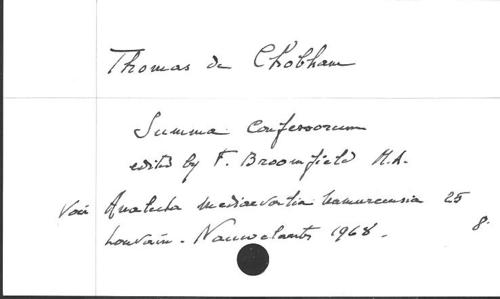 Thomas de Chobham
Summa Confessorum
edited by F. Broomfield M.A.
Voir Analecta mediaevalia Namurcensia 25
Louvain - Nauwelaerts 1968. 8.